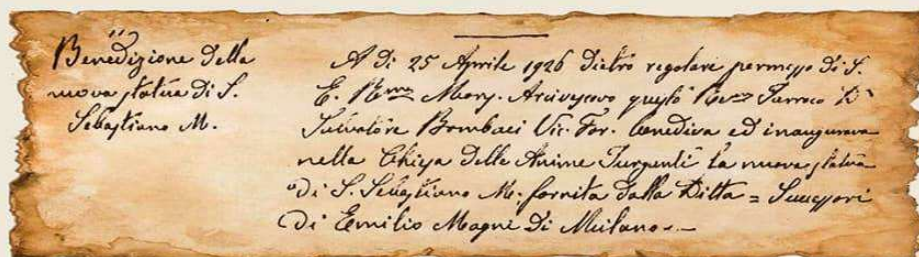 Benedizione della
nuova statua di S.
Sebastiano M.
A di 25 Aprile 1926 dietro regolare permesso di S.
E. R.ma Mons. Arcivescovo questo Rev.mo Parroco D.
Salvatore Bombaci Vic. For. benediva ed inaugurava
nella Chiesa delle Anime Purganti la nuova statua
di S. Sebastiano M. fornita dalla Ditta = Successori
di Emilio Magni di Milano.-